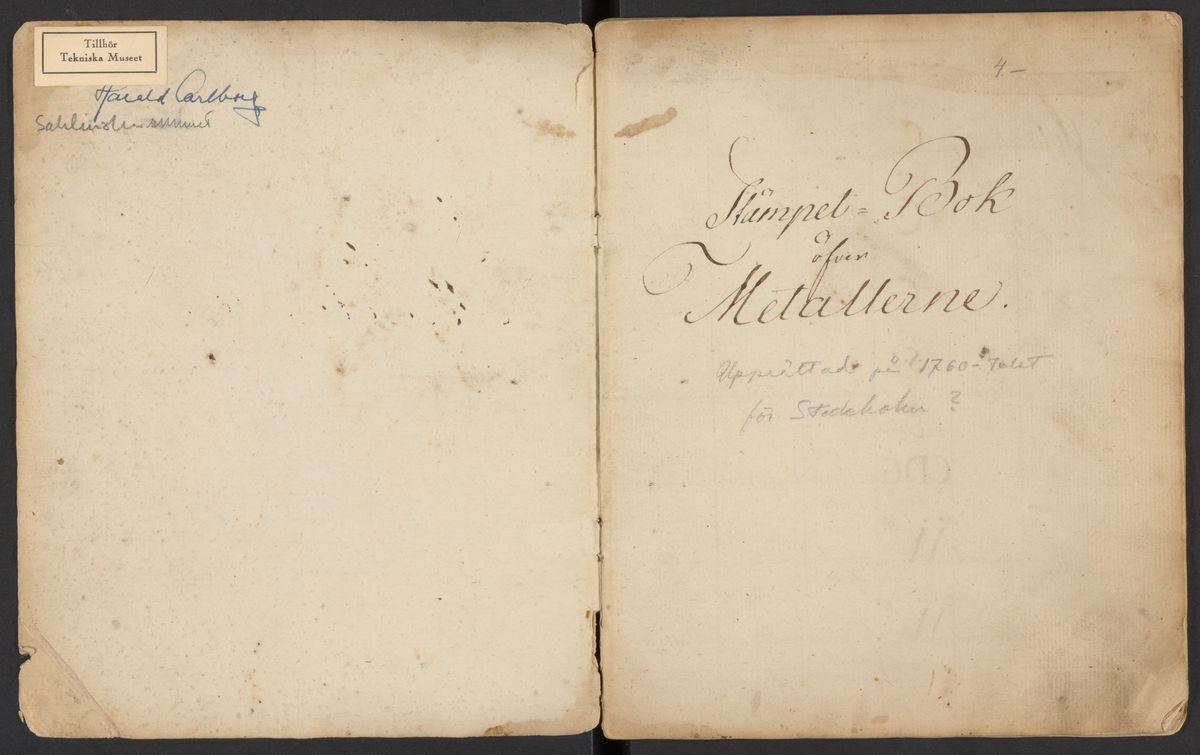 Tillhör
Tekniska Museet
Harald Carlborg
4-
Stämpel=Bok
öfver
Metallerne.
Upprättad på 1760-talet
för Stockholm ?